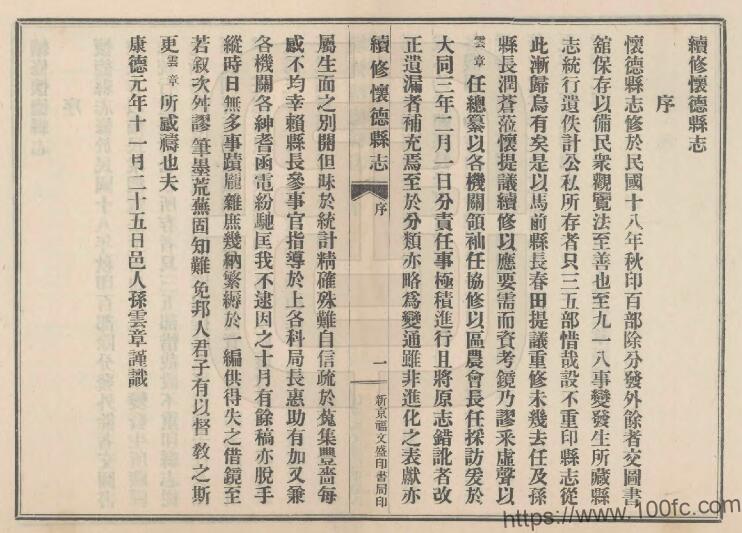 續修懷德縣志
序
懷德縣志修於民國十八年秋印百部除分發外餘者交圖書
舘保存以備民衆觀覽法至善也至九一八事變發生所藏縣
志統行遺佚計公私所存者只三五部惜哉設不重印縣志從
此漸歸烏有矣是以馬前縣長春田提議重修未幾去任及孫
縣長潤蒼蒞懷提議續修以應要需而資考鏡乃謬釆虛聲以
雲章任總纂以各機關領袖任協修以區農會長任採訪爰於
大同三年二月一日分責任事極積進行且將原志錯訛者改
正遺漏者補充焉至於分類亦略爲變通雖非進化之表獻亦
續修懷德縣志
序
一
新京福文盛印書局印
屬生面之別開但昧於統計精確殊難自信疏於蒐集豐嗇每
感不均幸賴縣長參事官指導於上各科局長惠助有加又兼
各機關各紳耆函電紛馳匡我不逮因之十月有餘稿亦脫手
縱時日無多事蹟龐雜庶幾納繁縟於一編供得失之借鏡至
若叙次舛謬筆墨荒蕪固知難免邦人君子有以督教之斯
更雲章所感禱也夫
康德元年十一月二十五日邑人孫雲章謹識
https://www.100fc.com